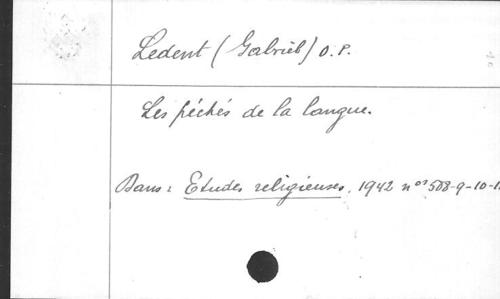 Ledent (Gabriel) O.P.
Les péchés de la langue.
Dans : Etudes religieuses, 1942 nos 508-9-10-1